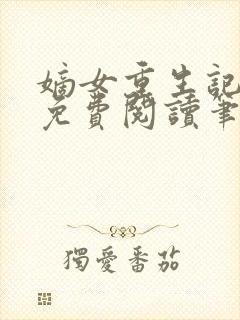 嫡女重生記
免費閱讀筆
獨愛番茄